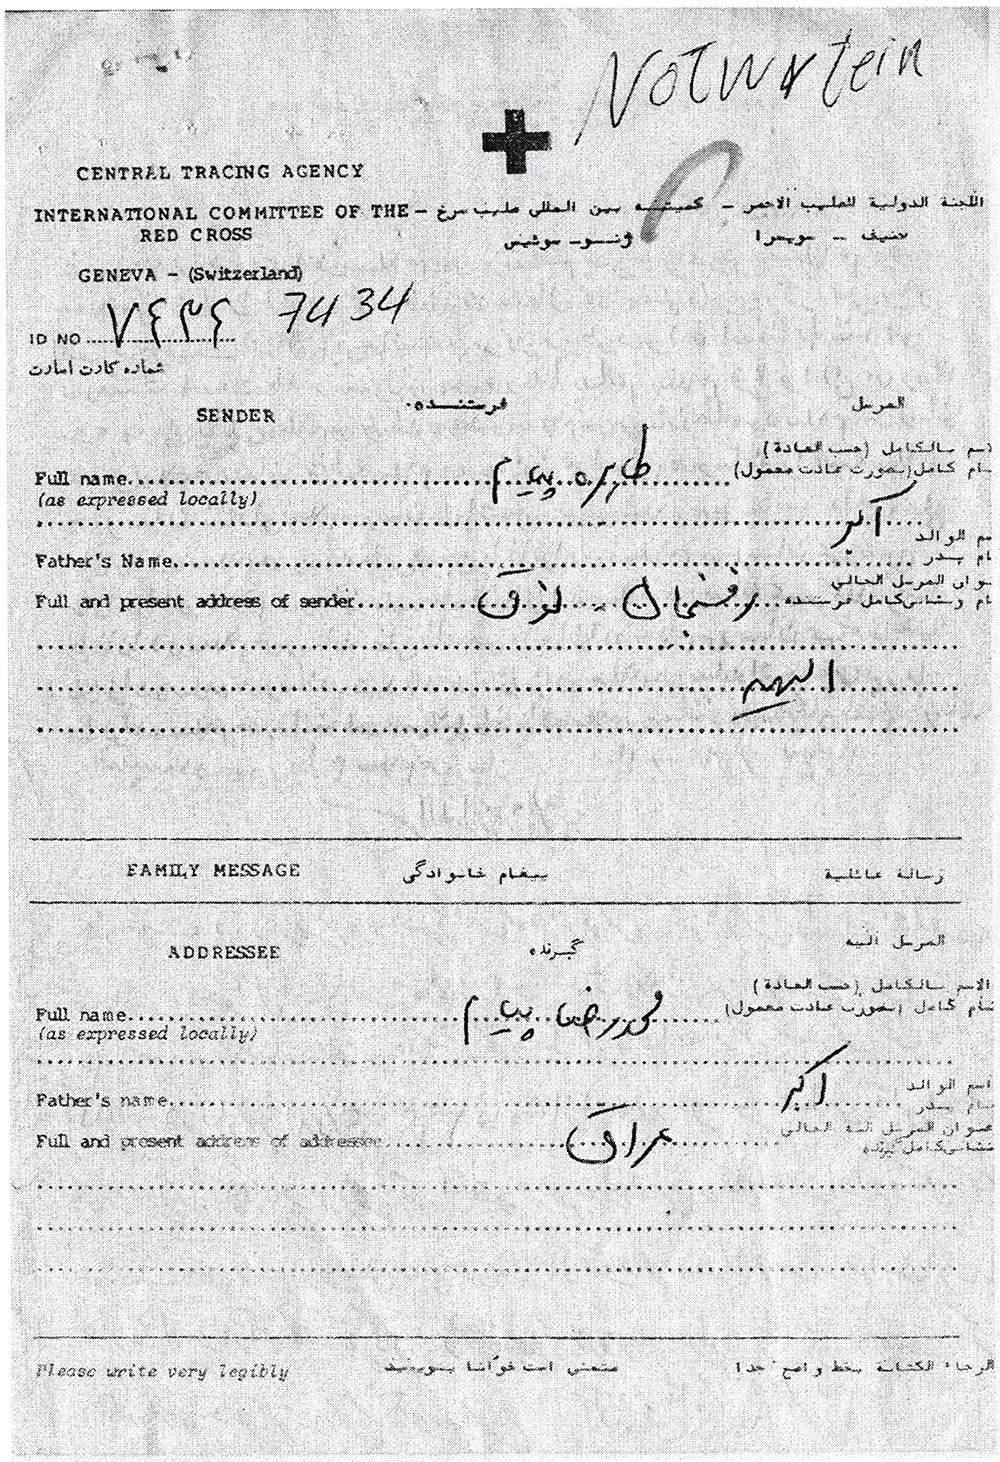 Notwrtein
CENTRAL TRACING AGENCY
INTERNATIONAL COMMITTEE OF THE RED CROSS
کمیته بین المللی صلیب سرخ - ژنو - سوئیس
اللجنة الدولية للصليب الاحمر - جنيف - سويسرا
GENEVA - (Switzerland)
ID NO ٧٤٣٤ 7434
شماره کارت اسارت
SENDER فرستنده المرسل
الاسم بالكامل (حسب العادة)
Full name طاهره پیام نام کامل (بصورت عادت معمول)
(as expressed locally)
اکبر اسم الوالد
Father's Name نام پدر
عنوان المرسل الحالي
Full and present address of sender رفسنجان نوق نام و نشانی کامل فرستنده
FAMILY MESSAGE پیغام خانوادگی رسالة عائلية
ADDRESSEE گیرنده المرسل اليه
الاسم بالكامل (حسب العادة)
Full name محمدرضا پیام نام کامل (بصورت عادت معمول)
(as expressed locally)
اکبر اسم الوالد
Father's name نام پدر
عنوان المرسل اليه الحالي
Full and present address of addressee عراق نشانی کامل گیرنده
Please write very legibly متمنی است خوانا بنویسید الرجاء الكتابة بخط واضح جدا